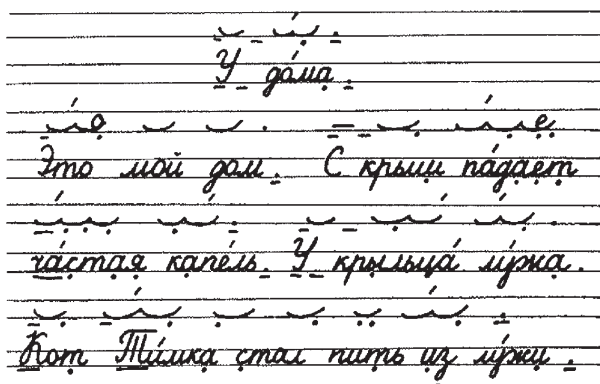 У до́ма.
Это мой дом. С крыш па́дает
ча́стая капе́ль. У крыльца́ лу́жа.
Кот Ти́мка стал пить из лу́жи.